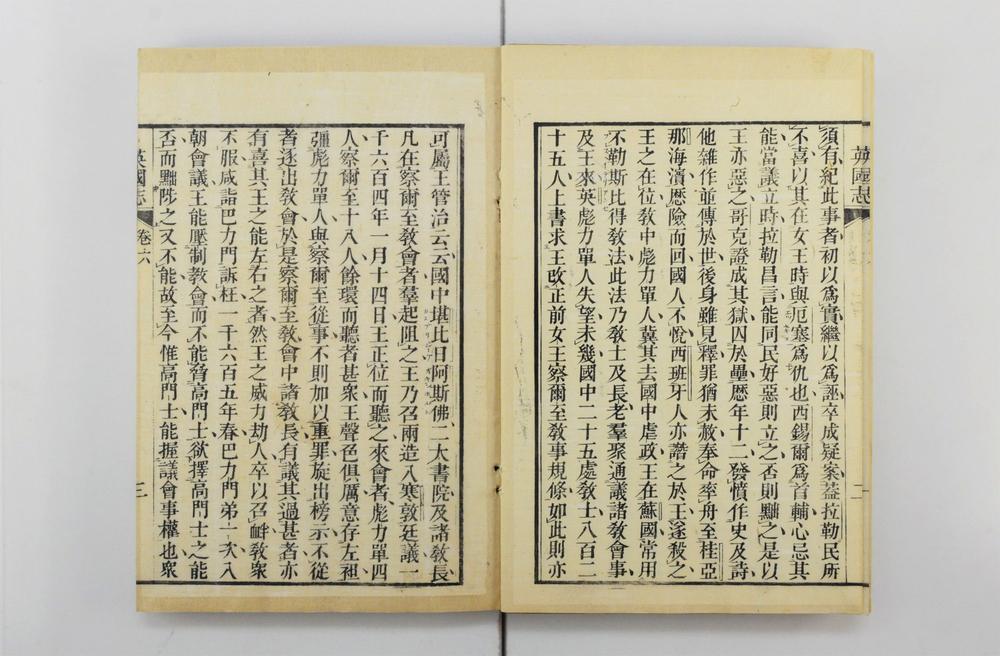 英國志
二
須有紀此事者初以爲實繼以爲誣卒成疑案蓋拉勒民所
不喜以其在女王時與厄塞爲仇也西錫爾爲首輔心忌其
能當議立時拉勒昌言能同民好惡則立之否則黜之是以
王亦惡之哥克證成其獄囚於壘歷年十二發憤作史及詩
他雜作並傳於世後身雖見釋罪猶未赦奉命率舟至桂亞
那海濱歷險而回國人不悅西班牙人亦譖之於王遂殺之
王之在位敎中彪力單人冀其去國中虐政王在蘇國常用
不勒斯比得敎法此法乃敎士及長老羣聚通議諸敎會事
及王來英彪力單人失望未幾國中二十五處敎士八百二
十五人上書求王改正前女王察爾至敎事規條如此則亦
可屬王管治云云國中堪比日阿斯佛二大書院及諸敎長
凡在察爾至敎會者羣起阻之王乃召兩造入寒敦廷議一
千六百四年一月十四日王正位而聽之來會者彪力單四
人察爾至十八人餘環而聽者甚衆王聲色俱厲意存左袒
彊彪力單人與察爾至從事不則加以重罪旋出榜示不從
者逐出敎會於是察爾至敎會中諸敎長有議其過甚者亦
有喜其王之能左右之者然王之威力劫人卒以召衅敎衆
不服咸詣巴力門訴枉一千六百五年春巴力門弟一次入
朝會議王能壓制敎會而不能脅高門士欲擇高門士之能
否而黜陟之又不能故至今惟高門士能握議會事權也衆
英國志
卷六
三